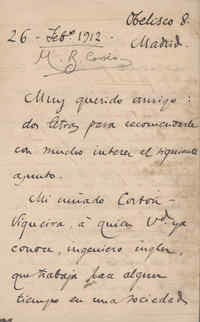 Obelisco 8.
26 - Feb.º 1912.
Madrid.
M. B. Cossío
Muy querido amigo:
dos letras para recomendarle
con mucho interés el siguiente
asunto.
Mi cuñado Cortón-
Viqueira, á quien Vd. ya
conoce, ingeniero ingles,
que trabaja hace algun
tiempo en una sociedad